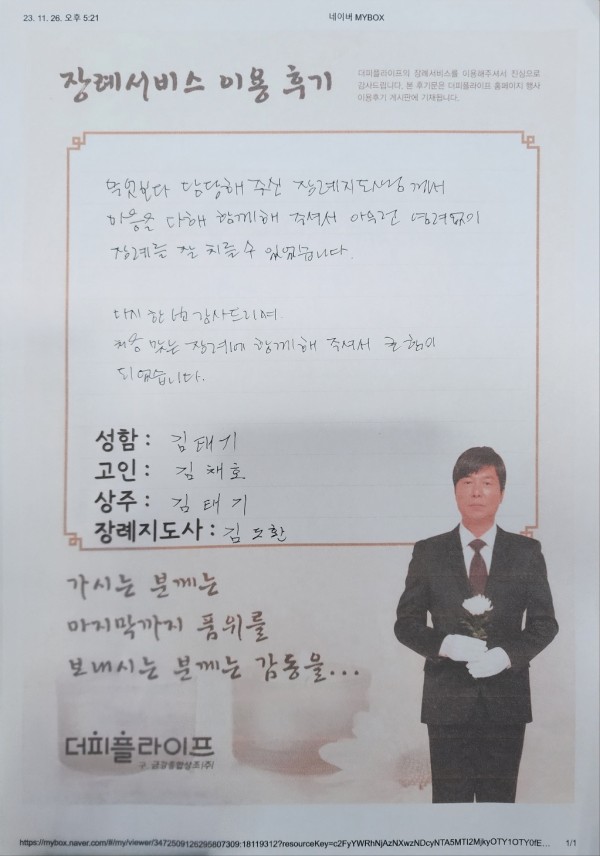 23. 11. 26. 오후 5:21
네이버 MYBOX
장례서비스 이용 후기
더피플라이프의 장례서비스를 이용해주셔서 진심으로
감사드립니다. 본 후기문은 더피플라이프 홈페이지 행사
이용후기 게시판에 기재됩니다.
무엇보다 담당해 주신 장례지도사님께서
마음을 다해 함께해 주셔서 아무런 염려없이
장례를 잘 치를 수 있었습니다.
다시 한 번 감사드리며
처음 맞는 장례에 함께해 주셔서 큰 힘이
되었습니다.
성함 : 김태기
고인 : 김채호
상주 : 김태기
장례지도사 : 김도환
가시는 분께는
마지막까지 품위를
보내시는 분께는 감동을...
더피플라이프
구. 금강종합상조(주)
https://mybox.naver.com/#/my/viewer/3472509126295807309:18119312?resourceKey=c2FyYWRhNjAzNXwzNDcyNTA5MTI2MjkyOTY1OTY0fE...
1/1